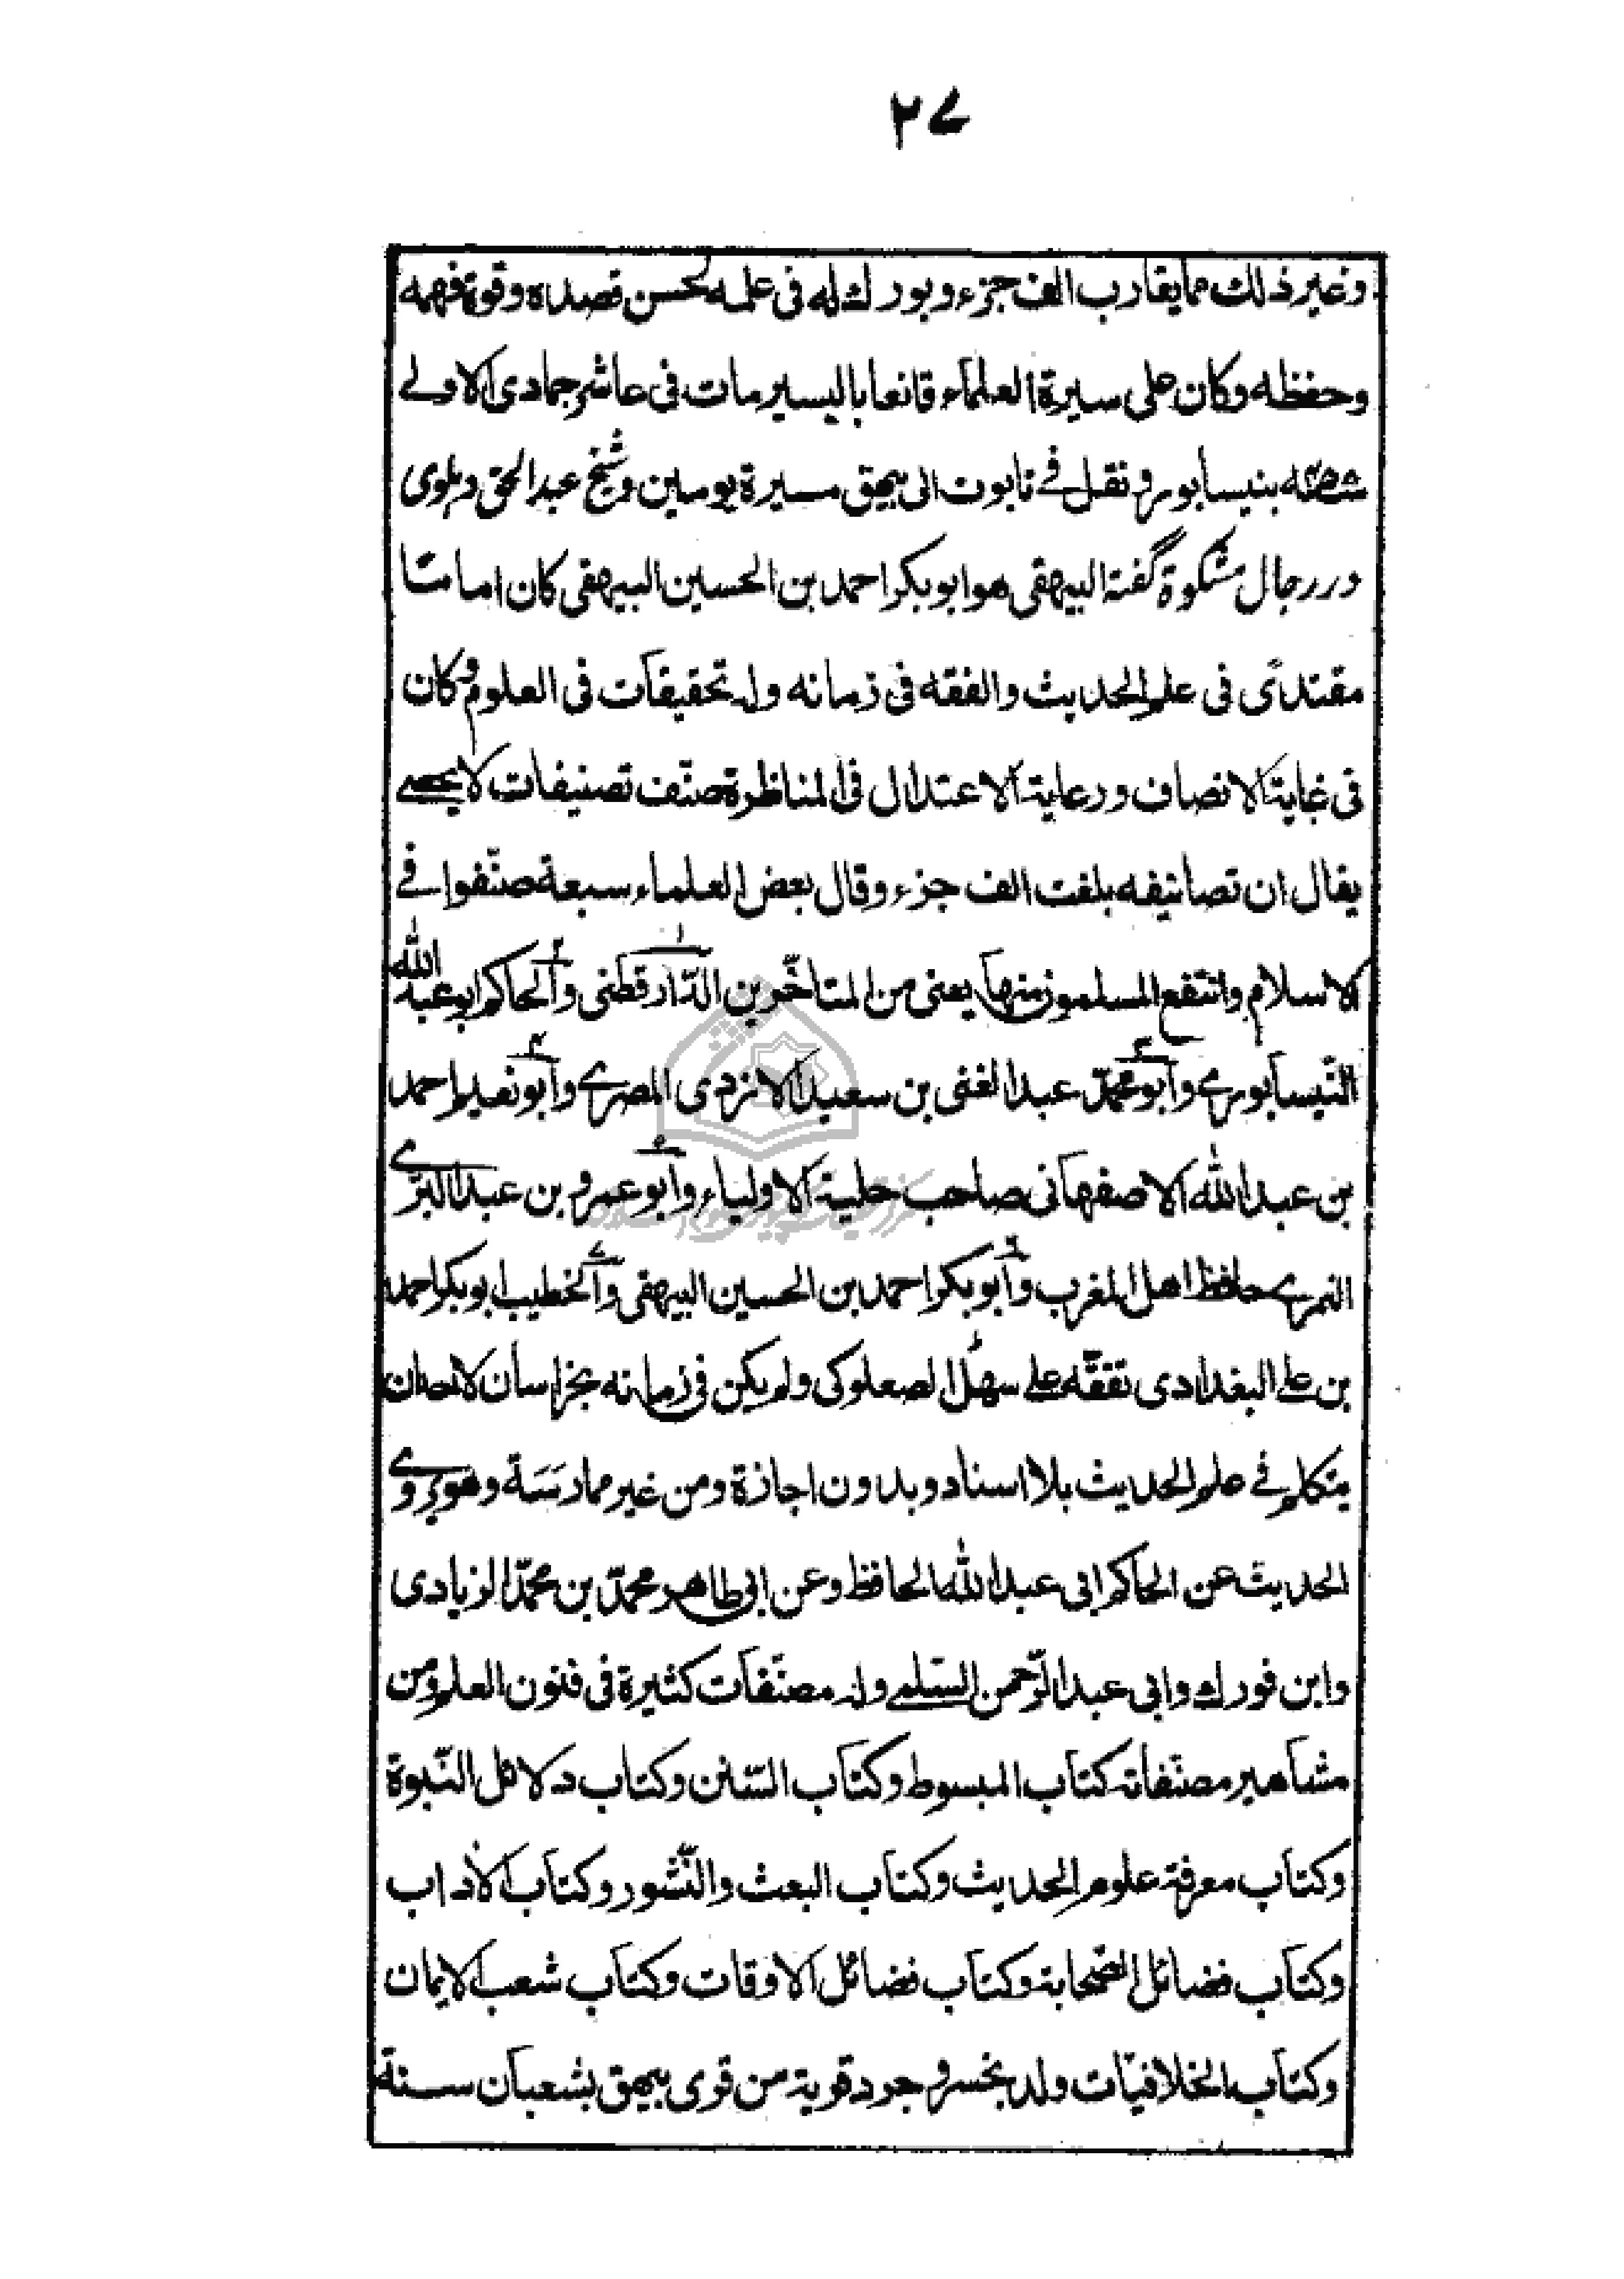 ۲۷
وغير ذلك مما يقارب الف جزء و بورك له فى علمه لحسن قصده و قوة فهمه
وحفظه و كان على سيرة العلماء قانعا باليسير مات فى عاشر جمادى الاولے
بنيسابور و نقل فے تابوت الى بيهق مسيرة يومين و شيخ عبدالحق دهلوى
در رجال مشكوة گفته البيهقى هو ابوبكر احمد بن الحسين البيهقى كان اماما
مقتدًى فى علم الحديث والفقه فى زمانه وله تحقيقات فى العلوم و كان
فى غاية الانصاف و رعاية الاعتدال فى المناظرة صنّف تصنيفات لا يحصے
يقال ان تصانيفه بلغت الف جزء و قال بعض العلماء سبعة صنّفوا فے
الاسلام و انتفع المسلمون منها يعنى من المتاخّرين الدّارقطنى ۱ والحاكم ۲ ابو عبد الله
النّيسابورے و ابو محمّد ۳ عبد الغنى بن سعيد الازدى المصرے و ابو نعيم ۴ احمد
بن عبد الله الاصفهانى صاحب حلية الاولياء و ابو عمرو ۵ بن عبد البرّے
النمرے حافظ اهل المغرب و ابوبكر ۶ احمد بن الحسين البيهقى والخطيب ۷ ابوبكر احمد
بن على البغدادى تفقّه على سهل الصعلوكى ولم يكن فى زمانه بخراسان لاحد ان
يتكلم فے علم الحديث بلا اسناد و بدون اجازة ومن غير ممارسة وهو يروے
الحديث عن الحاكم ابى عبد الله الحافظ وعن ابى طاهر محمّد بن محمّد الزيادى
وابن فورك وابى عبد الرّحمن السّلمے وله مصنّفات كثيرة فى فنون العلم ومن
مشاهير مصنّفاته كتاب المبسوط وكتاب السّنن وكتاب دلائل النّبوة
وكتاب معرفة علوم الحديث وكتاب البعث والنّشور وكتاب الآداب
وكتاب فضائل الصّحابة وكتاب فضائل الاوقات وكتاب شعب الايمان
وكتاب الخلافيّات ولد بخسروجرد قوية من قوى بيهق بشعبان سنة